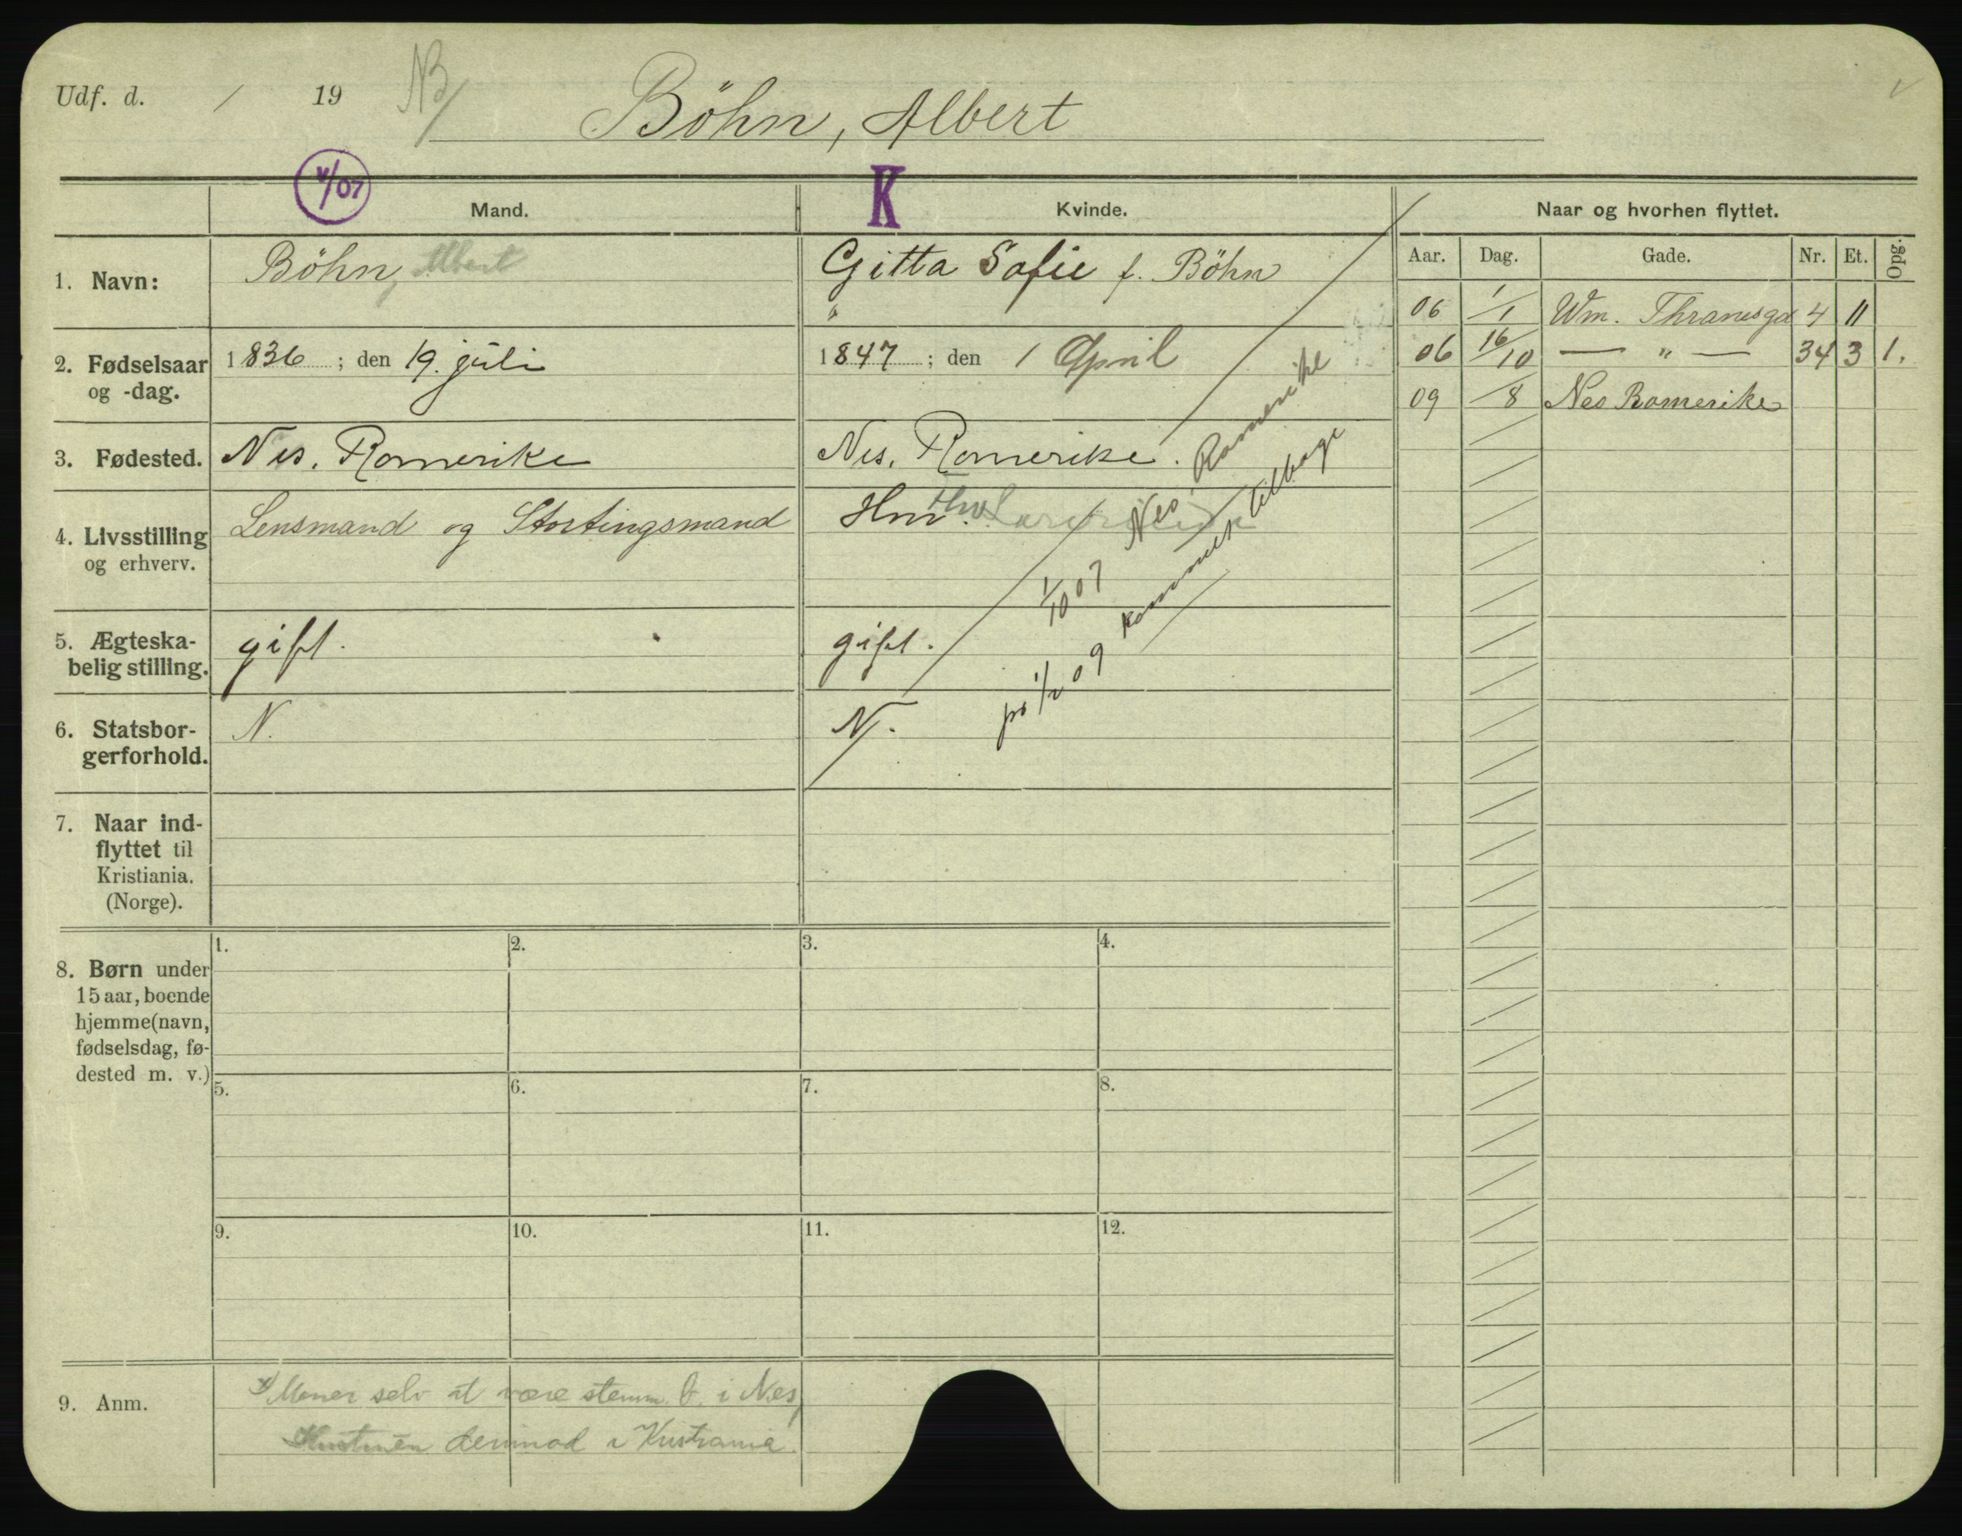 Udf. d. / 19 NB/
Böhn, Albert
v/07
K
Mand.
Kvinde.
Naar og hvorhen flyttet.
Aar. Dag. Gade. Nr. Et. Opg.
1. Navn:
Böhn, Albert
Gitta Sofie f. Böhn
"
06 1/1 Wm. Thranesgd 4 11
06 16/10 — " — 34 3 1.
09 /8 Nes Romerike
2. Fødselsaar
og -dag.
1836; den 19. juli
1847; den 1 April
3. Fødested.
Nes, Romerike
Nes, Romerike.
4. Livsstilling
og erhverv.
Lensmand og Stortingsmand
Hmv. Hmv
1/10 07 Nes, Romerike
pr 1/2 09 kommet tilbage
5. Ægteska-
belig stilling.
gift.
gift.
6. Statsbor-
gerforhold.
N.
N.
7. Naar ind-
flyttet til
Kristiania.
(Norge).
8. Børn under
15 aar, boende
hjemme (navn,
fødselsdag, fø-
dested m. v.)
1. 2. 3. 4.
5. 6. 7. 8.
9. 10. 11. 12.
9. Anm.
x) Mener selv at være stemm. b. i Nes,
Hustruen derimod i Kristiania.